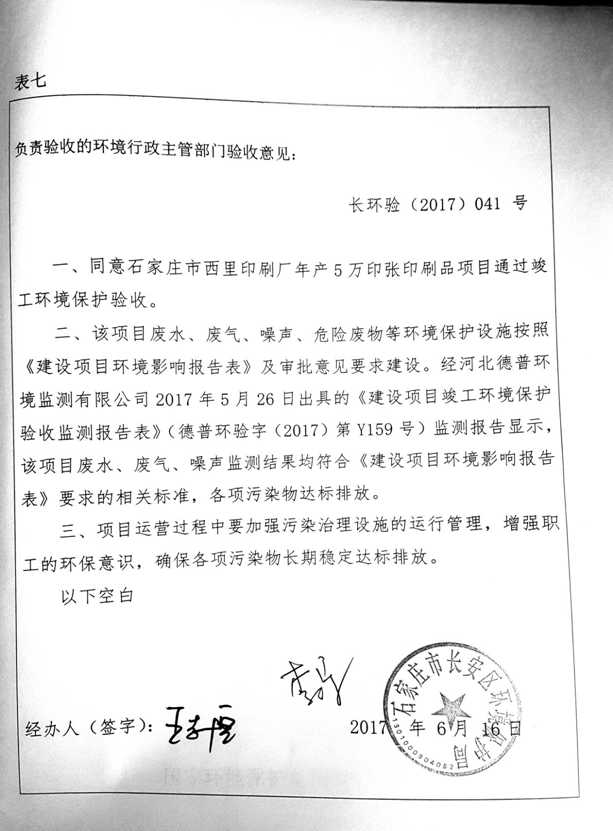 表七
负责验收的环境行政主管部门验收意见：
长环验（2017）041 号
一、同意石家庄市西里印刷厂年产5万印张印刷品项目通过竣
工环境保护验收。
二、该项目废水、废气、噪声、危险废物等环境保护设施按照
《建设项目环境影响报告表》及审批意见要求建设。经河北德普环
境监测有限公司2017年5月26日出具的《建设项目竣工环境保护
验收监测报告表》（德普环验字（2017）第Y159号）监测报告显示，
该项目废水、废气、噪声监测结果均符合《建设项目环境影响报告
表》要求的相关标准，各项污染物达标排放。
三、项目运营过程中要加强污染治理设施的运行管理，增强职
工的环保意识，确保各项污染物长期稳定达标排放。
以下空白
石家庄市长安区环境保护局
经办人（签字）：
2017 年 6 月 16 日